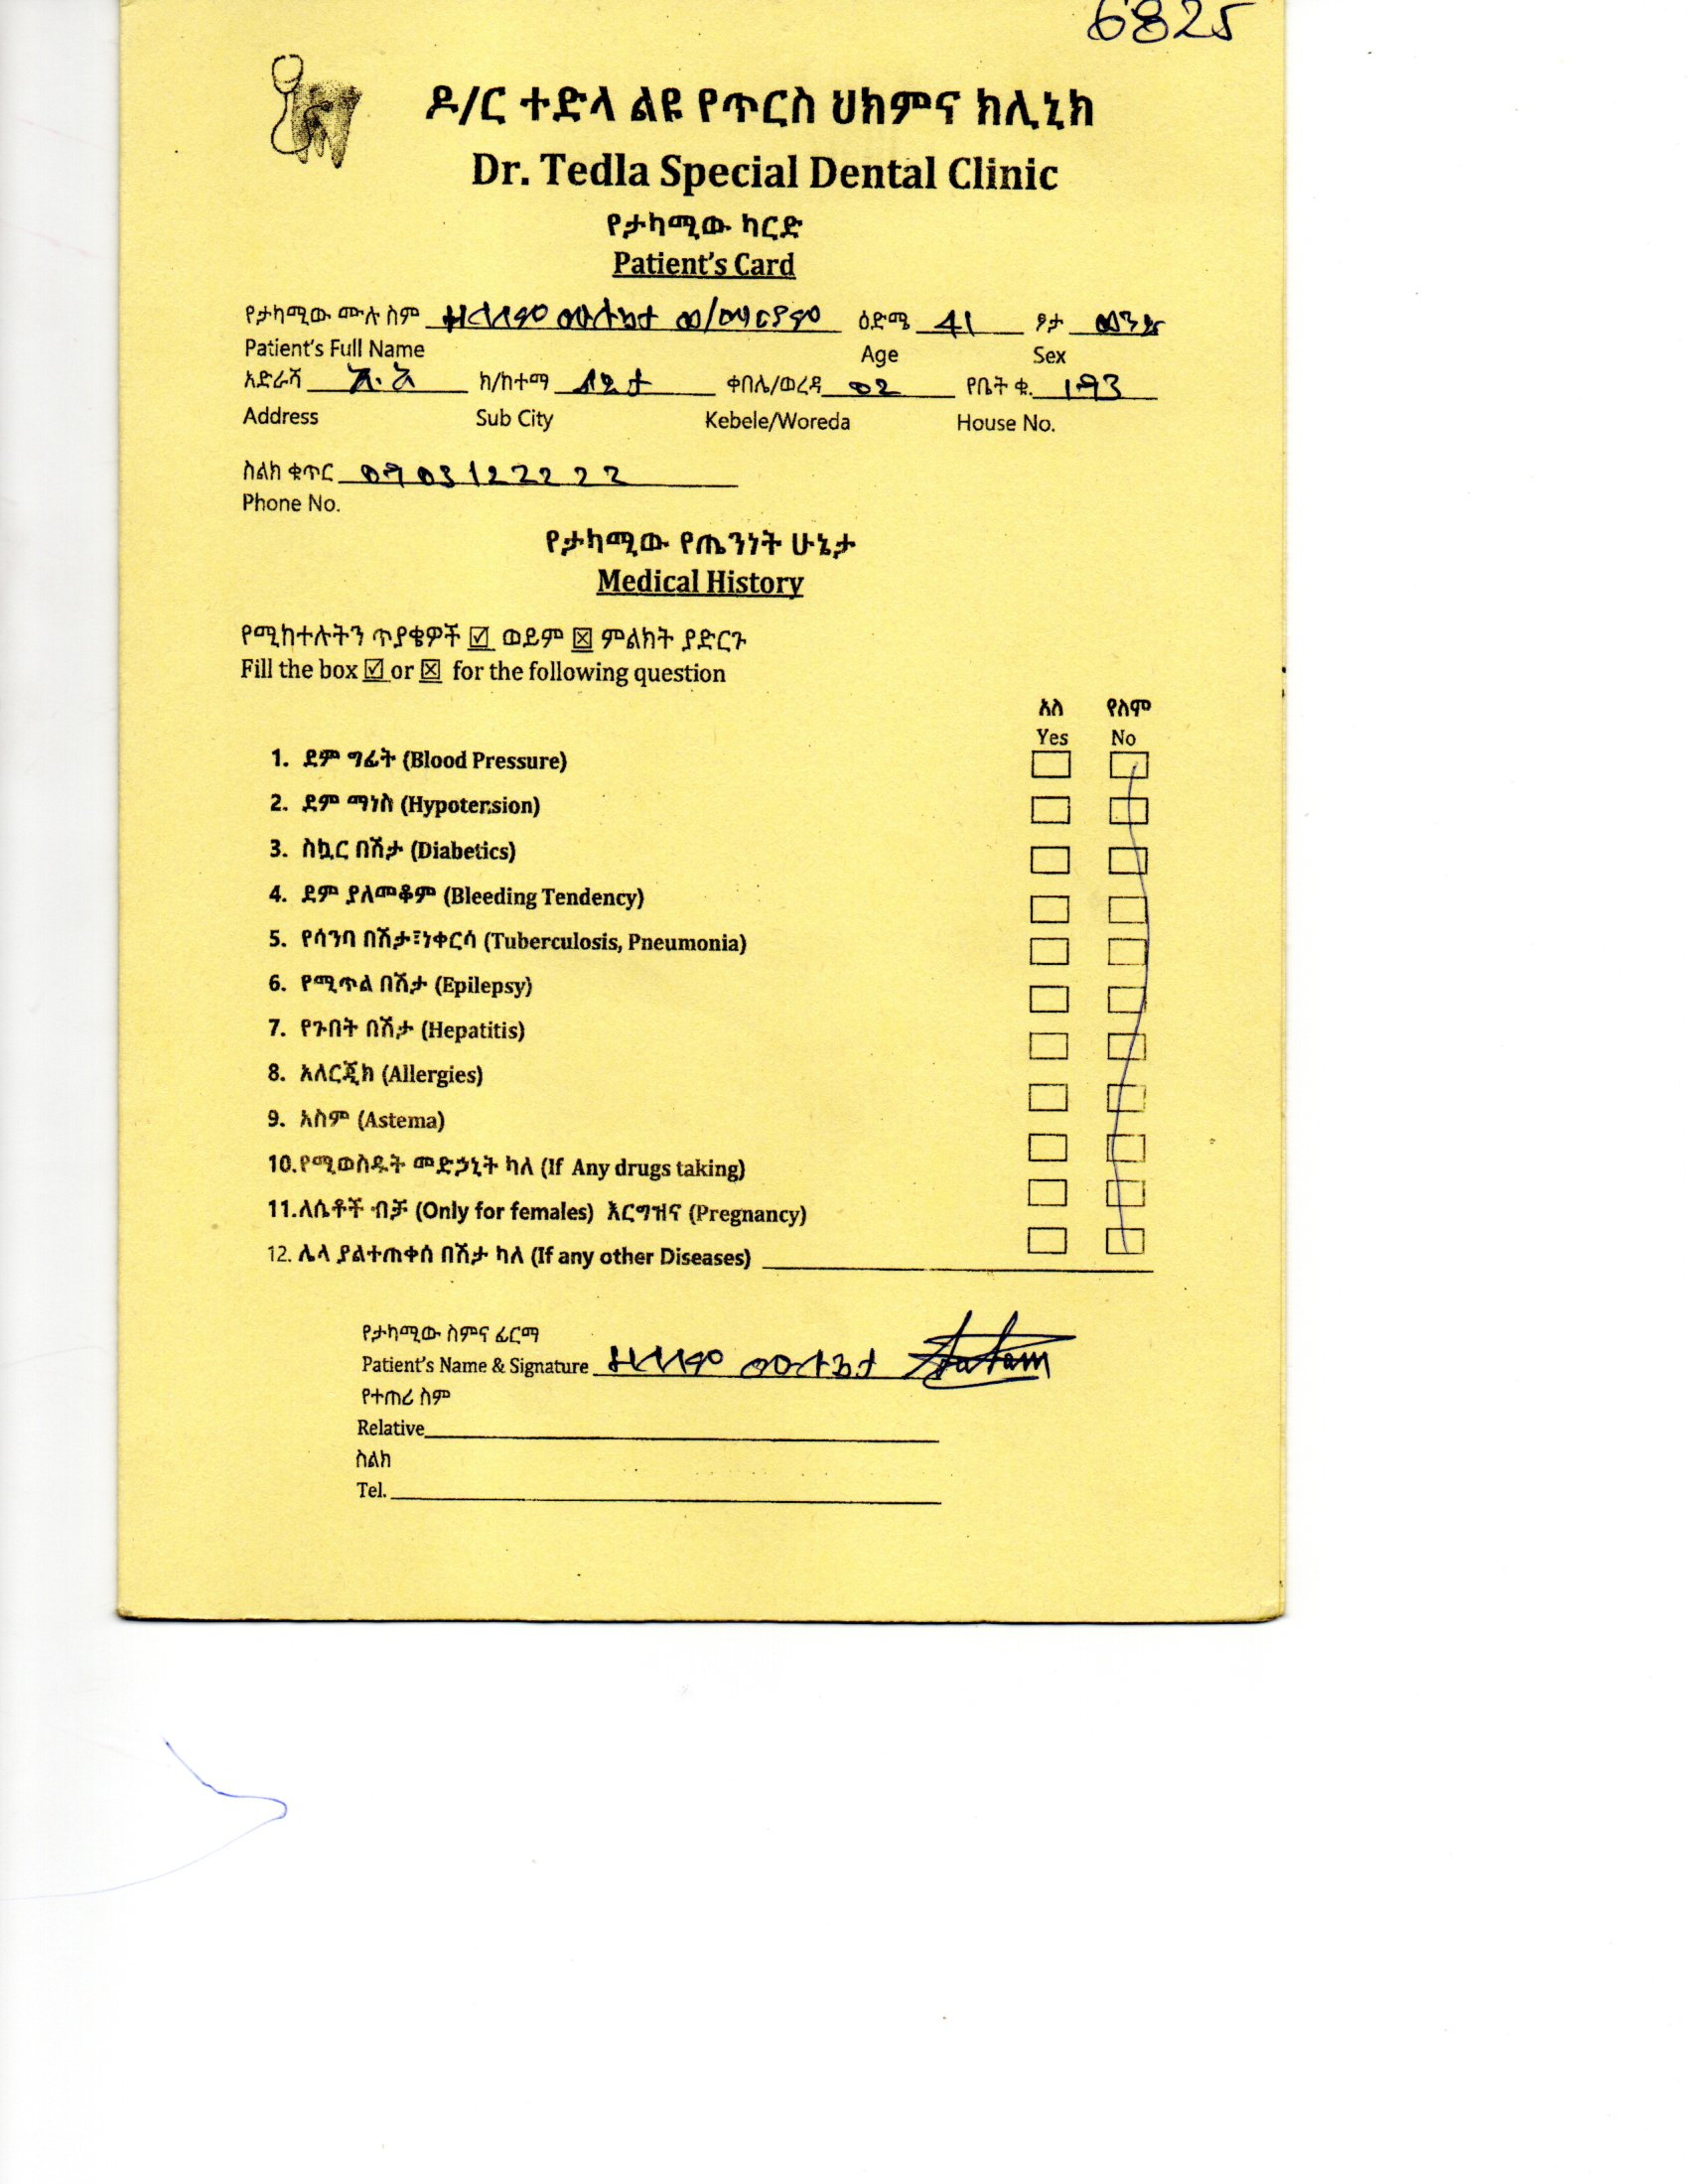 6825
ዶ/ር ተድላ ልዩ የጥርስ ህክምና ክሊኒክ
Dr. Tedla Special Dental Clinic
የታካሚው ካርድ
Patient's Card
የታካሚው ሙሉ ስም ዘላለም ሙሉጌታ ወ/ማርያም ዕድሜ 41 ፆታ ወንድ
Patient's Full Name Age Sex
አድራሻ አ.አ ክ/ከተማ ልደታ ቀበሌ/ወረዳ 02 የቤት ቁ. 193
Address Sub City Kebele/Woreda House No.
ስልክ ቁጥር 0903122222
Phone No.
የታካሚው የጤንነት ሁኔታ
Medical History
የሚከተሉትን ጥያቄዎች ☑ ወይም ☒ ምልክት ያድርጉ
Fill the box ☑ or ☒ for the following question
አለ የለም
Yes No
1. ደም ግፊት (Blood Pressure)
2. ደም ማነስ (Hypotension)
3. ስኳር በሽታ (Diabetics)
4. ደም ያለመቆም (Bleeding Tendency)
5. የሳንባ በሽታ፣ነቀርሳ (Tuberculosis, Pneumonia)
6. የሚጥል በሽታ (Epilepsy)
7. የጉበት በሽታ (Hepatitis)
8. አለርጂክ (Allergies)
9. አስም (Astema)
10.የሚወስዱት መድኃኒት ካለ (If Any drugs taking)
11.ለሴቶች ብቻ (Only for females) እርግዝና (Pregnancy)
12. ሌላ ያልተጠቀሰ በሽታ ካለ (If any other Diseases)
የታካሚው ስምና ፊርማ
Patient's Name & Signature ዘላለም ሙሉጌታ
የተጠሪ ስም
Relative
ስልክ
Tel.